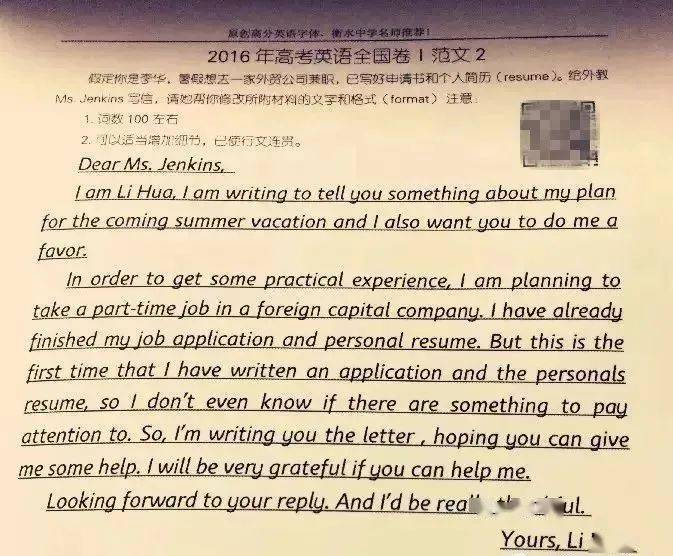 原创高分英语字体，衡水中学名师推荐！
2016 年高考英语全国卷 I 范文 2
假定你是李华，暑假想去一家外贸公司兼职，已写好申请书和个人简历（resume）。给外教
Ms. Jenkins 写信，请她帮你修改所附材料的文字和格式（format）注意：
1. 词数 100 左右
2. 可以适当增加细节，已使行文连贯。
Dear Ms. Jenkins,
I am Li Hua, I am writing to tell you something about my plan
for the coming summer vacation and I also want you to do me a
favor.
In order to get some practical experience, I am planning to
take a part-time job in a foreign capital company. I have already
finished my job application and personal resume. But this is the
first time that I have written an application and the personals
resume, so I don't even know if there are something to pay
attention to. So, I'm writing you the letter , hoping you can give
me some help. I will be very grateful if you can help me.
Looking forward to your reply. And I'd be
Yours, Li